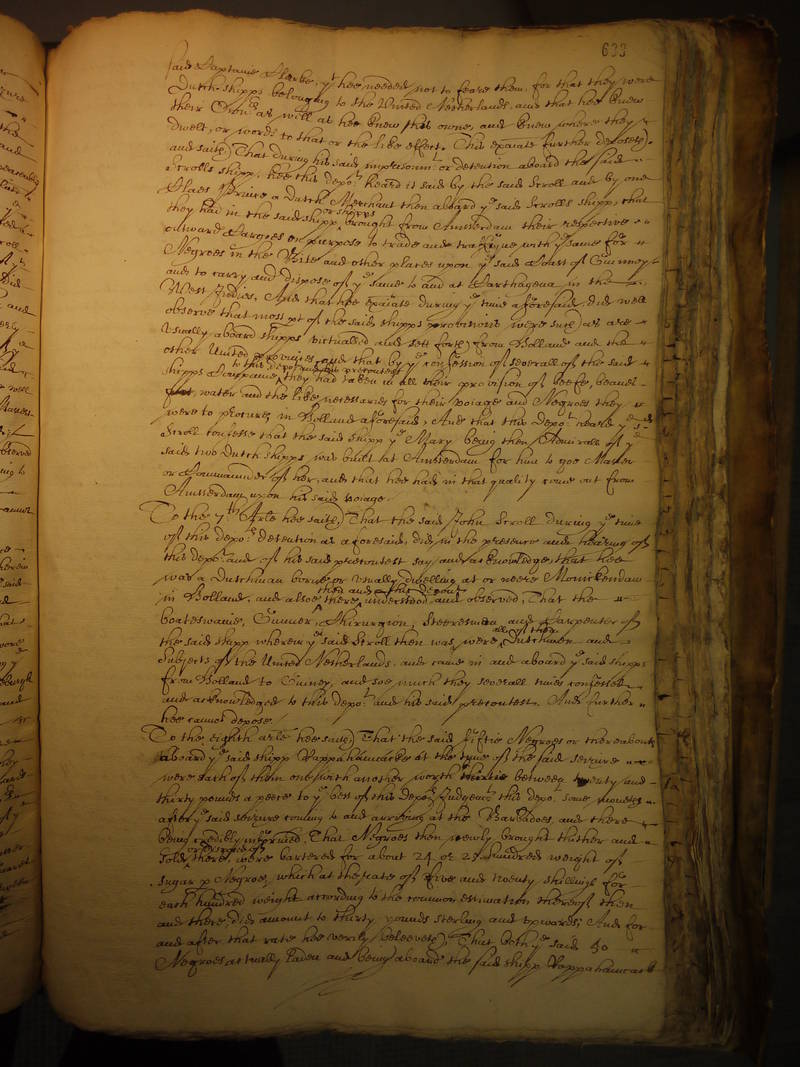 633
said Captaine Clarke, yt hee needed not to feare them, for that they were
Dutch shipps belonging to the United Netherlands, and that hee knew
their Owners as well as hee knew his owne, and knew where they
dwelt, or words to that or the like effect. This exãiate further deposeth
and saith That during his said imprisonmt or detention aboard the said
Scrolls shipp, hee this depot heard it said by the said Scroll and by one
Claes a Dutch Merchant then aboard ye said Scrolls shipp, that
they had in the said shipp or shipps brought from Amsterdam their respective
outward Cargoes on purpose to trade and traffique with ye same for
Negroes in the Bite and other places upon ye said Coast of Guinney
and to carry and dispose of ye same to and at Carthagena in the
West Indies, And that hee exãiate during ye time aforesaid did well
observe that most pt of the said shipps provisions were such as are
usually aboard shipps victualled and sett forth from Holland and the
other United provinces and that by ye confession of severall of the said
shipps Companie to this depot and his precontest they had taken in all their provision of beefe,
water and the like necessaries for their voiage and Negroes they
were to procure, in Holland aforesaid, And that this depot heard ye sd
Scroll confesse that the said shipp ye Mary being then Admirall of ye
said two Dutch shipps was built at Amsterdam for him to goe Master
or Commaunder of her, and that hee had in that quality come out from
Amsterdam upon his said voiage.
To the 7th Arle hee saith That the said John Scroll during ye time
of this depots detention as aforesaid, did in the presence and hearing of
this depot and of his said precontest say and acknowledge, that hee
was a Dutchman borne or usually dwelling at or neere Monickendam
in Holland, and alsoe there then and this deponent understood and observed, That the
boatswaine, Gunner, Chirurgion, Steeresman and Carpenter of
the said shipp wherein ye said Scroll then was, were all of them Dutchmen and
subjects of the United Netherlands, and came in and aboard ye said shipps
from Holland to Guiney, and soe much they severall times confessed
and acknowledged to this depot and his said precontest. And further
hee cannot depose.
To the eighth arle hee saith That the said fiftie Negroes or thereabouts
aboard ye said shipp Rappahannacke at the tyme of the said seizure
were each of them one with another worth betweene twenty and
thirty pounds a peece to ye best of this Depots Judgemt this depot some moneths
after ye said seizure coming to and arriving at the Barbadoes, and there
being credibly informed, That Negroes then newly brought thither and
sold or disposed of there, were bartered for about 24 or 25 hundred weight of
sugar p Negroe, which at the rate of five and twenty shillings for
each hundred weight according to the common estimation thereof then
and there, did amount to thirty pounds sterling and upwards; And for
and after that rate hee verily beleeveth, That both ye said 50
Negroes actually laden and being aboard the said shipp Rappahannack